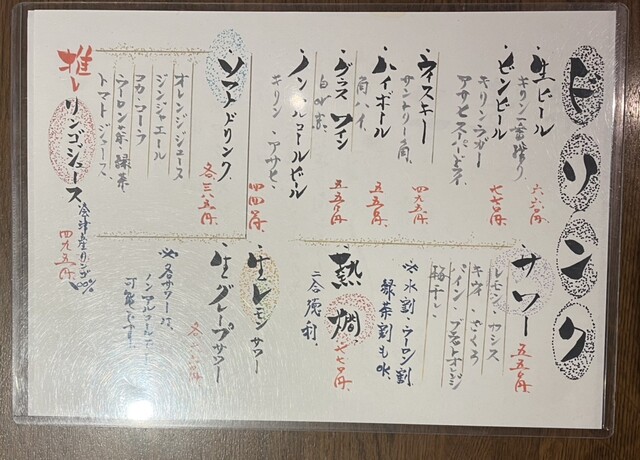 ドリンク
・生ビール
キリン一番搾り
六六〇円
・ビンビール
キリンラガー
アサヒスーパードライ
七七〇円
・ウィスキー
サントリー角
四九五円
・ハイボール
角ハイ
五五〇円
・グラスワイン
白or赤
五五〇円
・ノンアルコールビール
キリン・アサヒ
四四〇円
・ソフトドリンク
オレンジジュース
ジンジャエール
コカ・コーラ
ウーロン茶・緑茶
トマトジュース
各三八五円
推し
リンゴジュース
会津産りんご100%
四九五円
・サワー
五五〇円
レモン・カシス
キウイ・ざくろ
パイン・ブラッドオレンジ
梅干し
※水割・ウーロン割
緑茶割も
・熱燗
七七〇円
二合徳利
・生レモンサワー
・生グレープサワー
各
円
※各サワーは、
ノンアルコール
可能です。